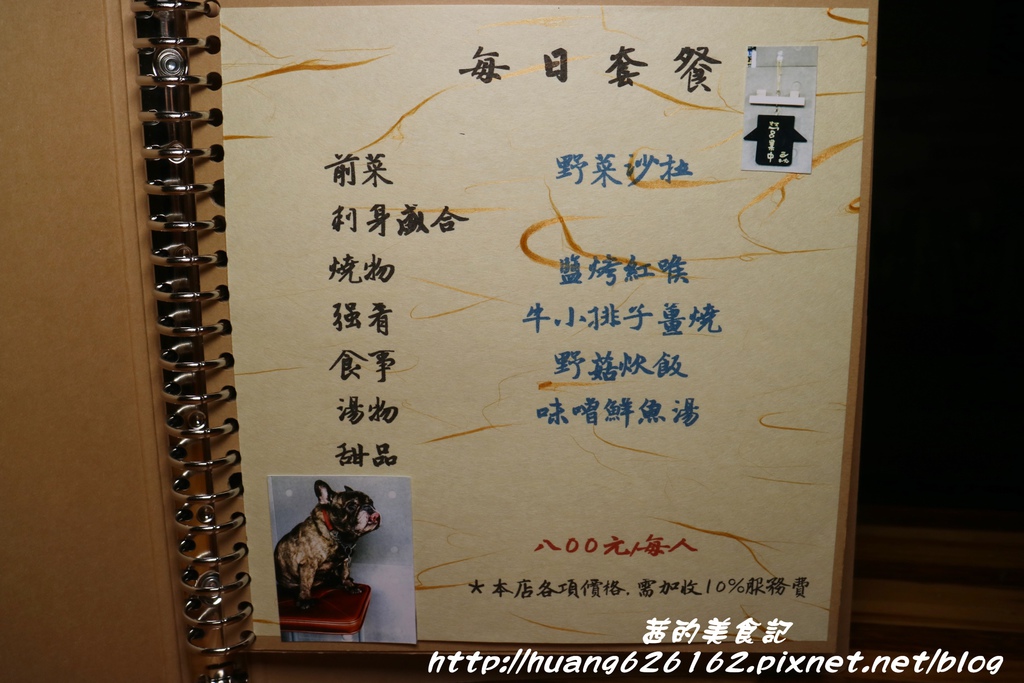 每日套餐
前菜 野菜沙拉
刺身盛合
燒物 鹽烤紅喉
强肴 牛小排子薑燒
食事 野菇炊飯
湯物 味噌鮮魚湯
甜品
八00元/每人
*本店各項價格.需加收10%服務費
茜的美食記
http://huang626162.pixnet.net/blog